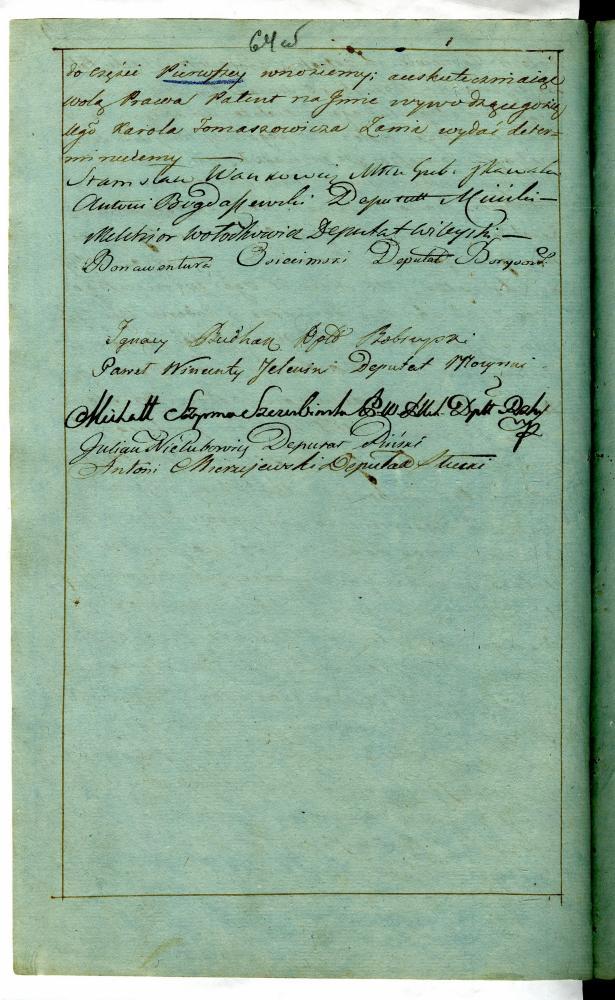 64 v
do części Pierwszey wnosiemy; a uskuteczniaiąc
wolą Prawa Patent na Jmie wywodzącego się
tego Karola Tomaszowicza Zana wydać deter-
minuiemy —
Stanisław Wankowicz Mar. Gub. Kawaler
Antoni Bogdaszewski Deputatt Miński —
Melchior Wołodkowicz Deputat Wileyski —
Bonawentura Osiecimski Deputat Borysow:
Ignacy Bułhak Dptt Bobruyski
Paweł Wincenty Jelenin Deputat Mozyrski
Michałł Szyma Szczerbinski Dptt
Julian Nielubowicz Deputat Piński
Antoni Mierzejewski Deputat Słucki